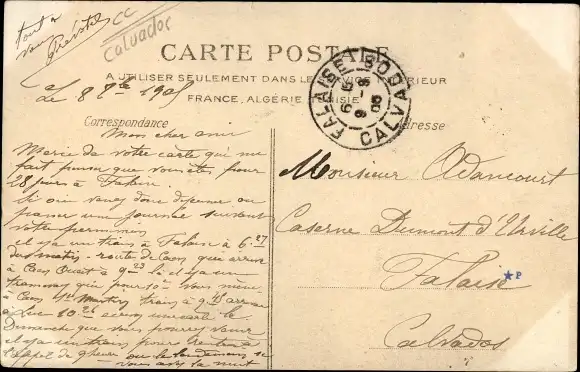 tout à
vous
CC
Calvados
CARTE POSTALE
A UTILISER SEULEMENT DANS LE SERVICE INTÉRIEUR
FRANCE, ALGÉRIE, TUNISIE
FALAISE
CALVADOS
Le 8 1905
Correspondance
Adresse
Mon cher ami
Merci de votre carte qui me
fait penser que vous êtes pour
28 jours à Falaise.
Si où venez donc
passer une journée suivant
votre permission
et il y a un train à Falaise à 6-27
du matin - route de Caen que arrive
à Caen Ouest à 9 23 là il y a un
tramway qui pour 10 vous mène
à Caen St Martin train à 9 45 arrivée
à Luc 10 26
Dimanche que vous pourrez venir
et il y a un train pour
l'appel de 9 heures ou le lendemain
la nuit
Monsieur Adancourt
Caserne Dumont d'Urville
Falaise
Calvados
P